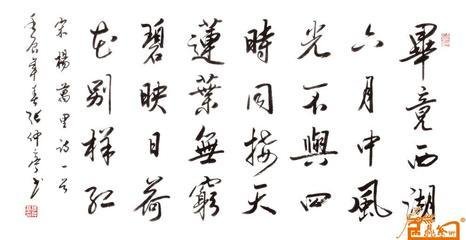 畢竟西湖
六月中風
光不與四
時同接天
蓮葉無窮
碧映日荷
花別樣紅
宋楊萬里詩一首
壬辰年春張仲亭书